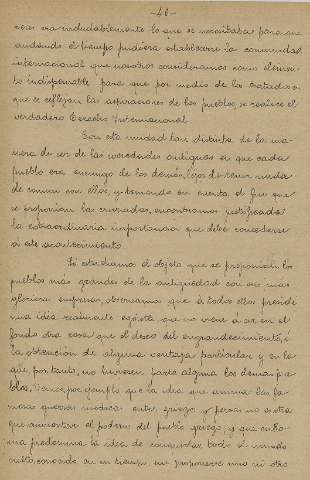 -40-
era indudablemente lo que se necesitaba para que
andando el tiempo pudiera establecerse la comunidad
internacional que nosotros consideramos como elemen-
to indispensable para que por medio de los tratados en
que se reflejan las aspiraciones de los pueblos, se realice el
verdadero Derecho Internacional.
Con esta unidad tan distinta de la ma-
nera de ser de las sociedades antiguas en que cada
pueblo era enemigo de los demás, lejos de tener nada
de común con ellos, y tomando en cuenta el fin que
se proponían las cruzadas, encontramos justificada
la extraordinaria importancia que debe concederse
á este acontecimiento.
Si estudiamos el objeto que se proponían los
pueblos más grandes de la antigüedad con sus mas
gloriosas empresas, observamos que á todas ellas preside
una idea realmente egoista que no viene á ser en el
fondo otra cosa que el deseo del engrandecimiento, ó
la obtención de alguna ventaja particular y en la
que, por tanto, no tuviesen parte alguna los demás pue-
blos. Vemos por ejemplo que la idea que anima las fa-
mosas guerras médicas entre griegos y persas no es otra
que aumentar el poderío del pueblo griego, y que en Ro-
ma predomina la idea de conquistar todo el mundo
conocido en su tiempo, sin proponerse uno ni otro